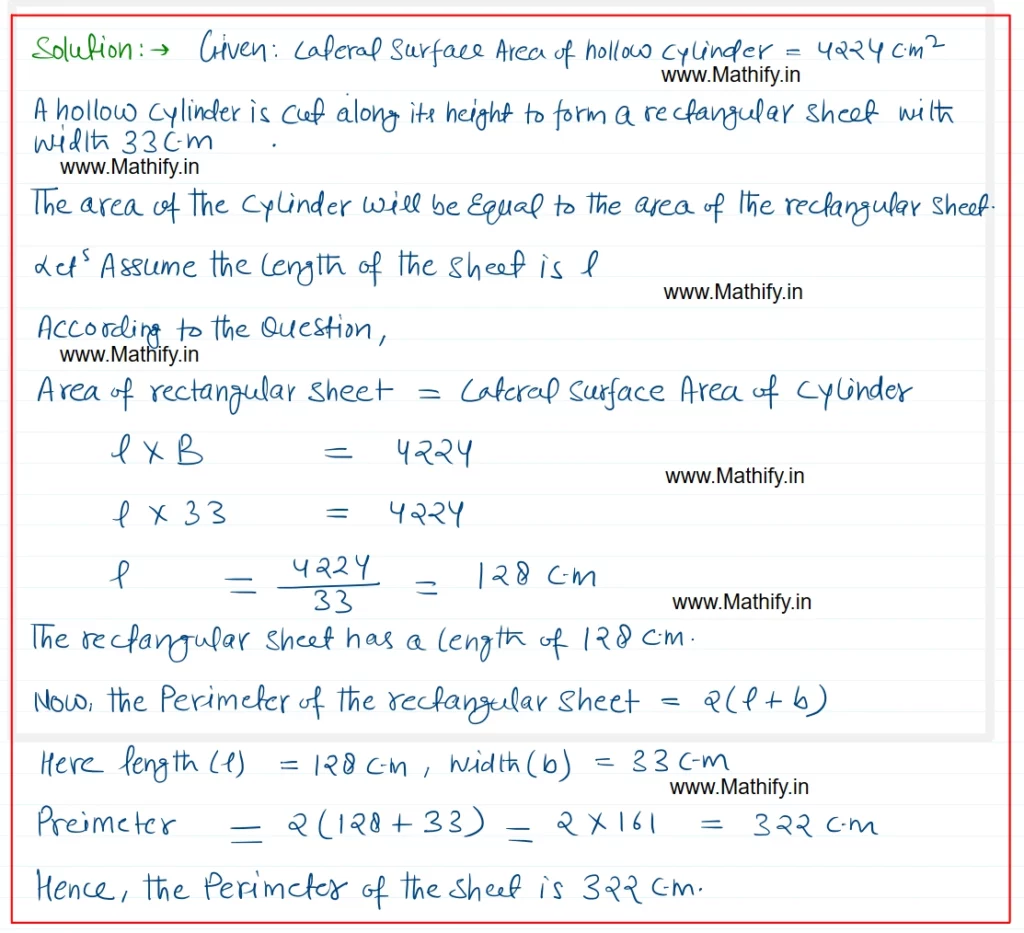 Solution:→ Given: Lateral Surface Area of hollow cylinder = 4224 cm²
www.Mathify.in
A hollow cylinder is cut along its height to form a rectangular sheet with
width 33cm.
www.Mathify.in
The area of the cylinder will be Equal to the area of the rectangular sheet.
Let's Assume the length of the sheet is l
www.Mathify.in
According to the Question,
www.Mathify.in
Area of rectangular sheet = Lateral Surface Area of cylinder
l × B = 4224
www.Mathify.in
l × 33 = 4224
l = 4224/33 = 128 cm
www.Mathify.in
The rectangular sheet has a length of 128 cm.
Now, the Perimeter of the rectangular sheet = 2(l + b)
Here length (l) = 128 cm, width (b) = 33 cm
www.Mathify.in
Preimeter = 2(128 + 33) = 2 × 161 = 322 cm
Hence, the Perimeter of the sheet is 322 cm.